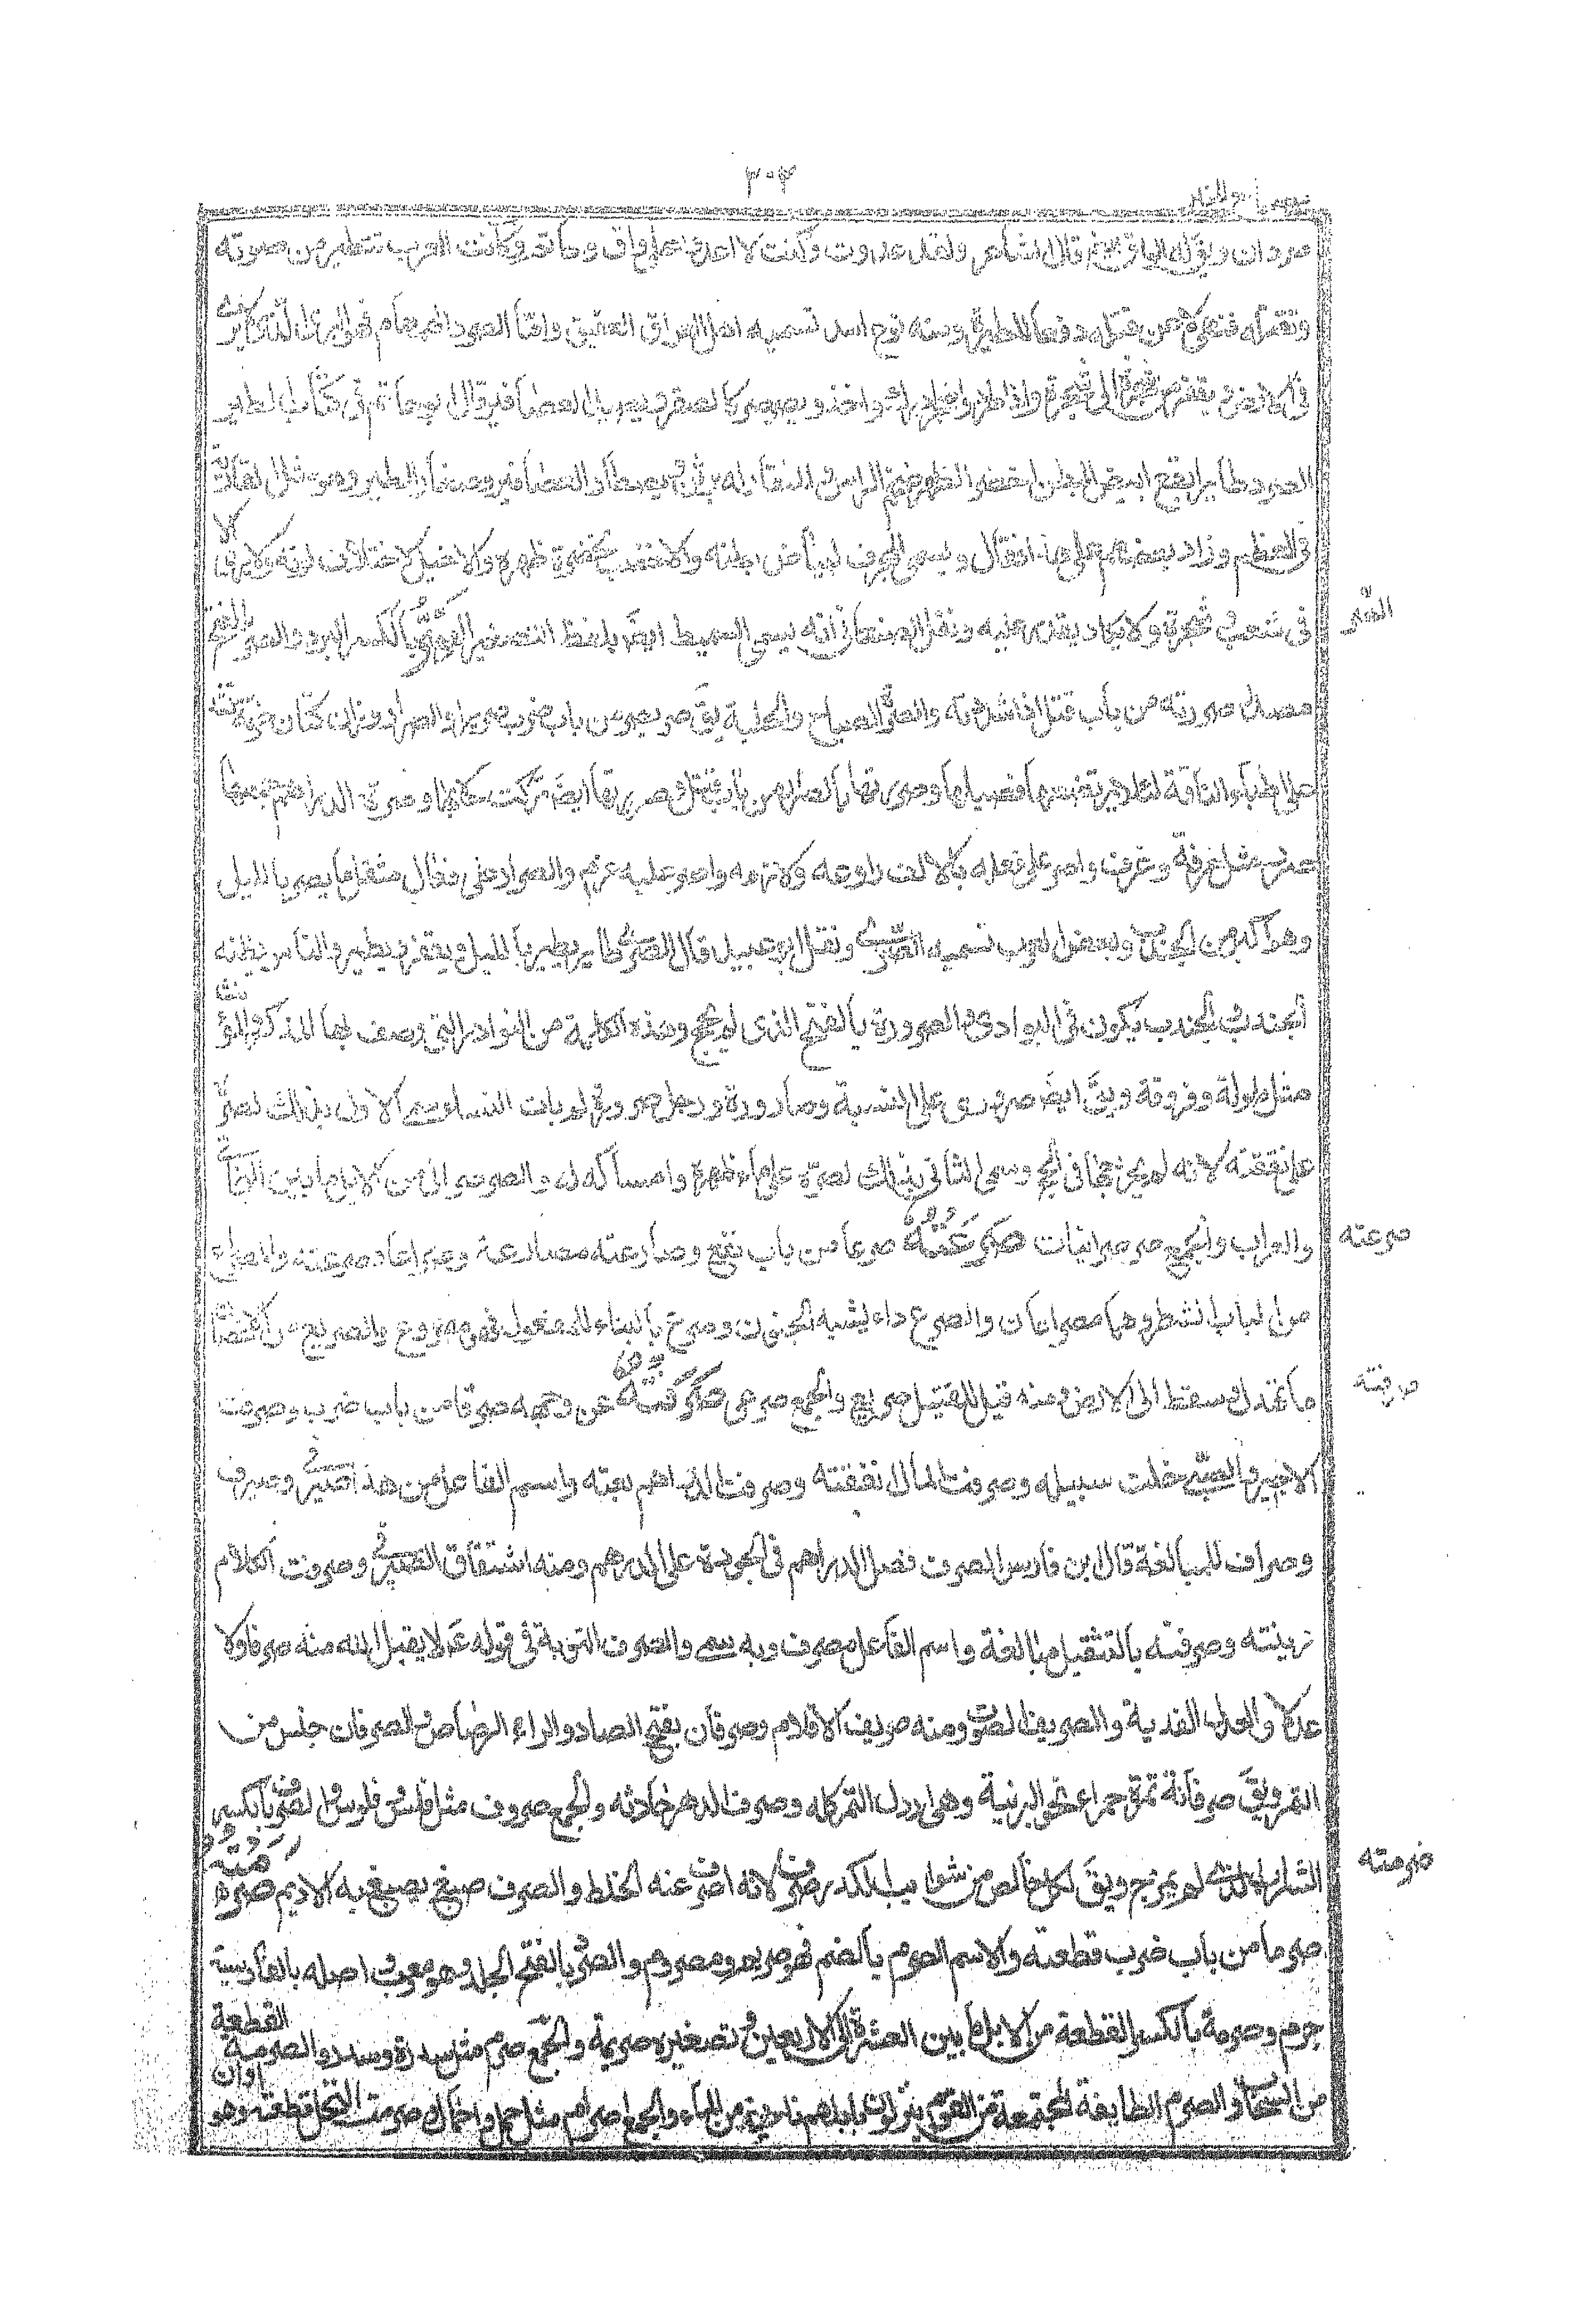 ٣٠٣
مصباح المنير
صردان ويقال له الواق ايضا قال الشاعر ولقد غدوت وكنت لا اغدو على واق وحاتم وكانت العرب تتطير من صوته
وتقتله فنهى عن قتله دفعا للطيرة ومنه نوع اسبد تسميه اهل العراق العقعق واما الصرد الهمهام فهو البرى الذى لا يرى
فى الارض ويقفز من شجرة الى شجرة واذا طرد واضجر ادرك واخذ ويصرصر كالصقر ويصيد العصافير قال ابو حاتم فى كتاب الطير
الصرد طاير ابقع ابيض البطن اخضر الظهر ضخم الراس والمنقار له برثن ويصطاد العصافير وصغار الطير وهو مثل القارية
فى العظم وزاد بعضهم على هذا فقال ويسمى المجوف لبياض بطنه والاخطب لخضرة ظهره والاخيل لاختلاف لونه ولا يرى الا
فى شعب او شجرة ولا يكاد يقدر عليه ونقل الصغانى انه يسمى السميط ايضا بلفظ التصغير الصِّرُّ بالكسر البرد والصر بالفتح
الصر
مصدر صررته من باب قتل اذا شددته والصرة الصياح والجلبة يق صر يصر من باب ضرب صريرا والصرار وزان كتاب خرقة تشد
على اطباء الناقة لئلا يرتضعها فصيلها وصررتها بالصرار من باب قتل وصريتها ايضا تركت حلابها وصرة الدراهم جمعها
صرر مثل غرفة وغرف واصر على فعله بالالف داومه ولازمه واصر عليه عزم والصرار وزان فعال مثقل ما يصر بالليل
وهو اكبر من الجندب وبعض العرب تسميه الصدى ونقل ابو عبيد قال الصدى طاير يطير بالليل ويقفز ويطير والناس يظنه
الجندب والجندب يكون فى البوادى والصرورة بالفتح الذى لم يحج وهذه الكلمة من النوادر التى وصف بها المذكر والمؤنث
مثل ملولة وفروقة ويق ايضا صرورى على النسبة وصارورة ورجل صرورة لم يات النساء سمى الاول بذلك لصره
على نفقته لانه لم يخرجها فى الحج وسمى الثانى بذلك لصره على ماء ظهره وامساكه له والصرصرانى من الابل ما بين البخاتى
والعراب والجمع صرصرانيات صَرَعْتُهُ صرعا من باب نفع وصارعته مصارعة وصراعا وصرعته والمصراع
صرعته
من الباب الشطر وهما مصراعان والصرع داء يشبه الجنون وصرع بالبناء للمفعول فهو مصروع والصريع من الاغصان
ما تهدل وسقط الى الارض ومنه قيل للقتيل صريع والجمع صرعى صَرَفْتُهُ عن وجهه صرفا من باب ضرب وصرفت
صرفته
الاجير والصبى خليت سبيله وصرفت المال انفقته وصرفت الدراهم بعته واسم الفاعل من هذا صيرفى وصيرف
وصراف للمبالغة قال ابن فارس الصرف فضل الدراهم فى الجودة على الدرهم ومنه اشتقاق الصيرفى وصرفت الكلام
زينته وصرفته بالتثقيل مبالغة واسم الفاعل مصرف وبه سمى والصرف التوبة فى قوله عم لا يقبل الله منه صرفا ولا
عدلا والعدل الفدية والصريف الصوت ومنه صريف الاقلام وصرفان بفتح الصاد والراء الرصاص والصرفان جنس من
التمر ويق صرفانة تمرة حمراء نحو البرنية وهى اردل التمر كله وصرف الدهر حادثه والجمع صروف مثل فلس وفلوس والصرف بالكسر
الشراب الذى لم يمزج ويق لكل خالص من شوايب الكدر صرف لانه صرف عنه الخلط والصرف صبغ يصبغ به الاديم صَرَمْتُهُ
صرمته
صرما من باب ضرب قطعته والاسم الصرم بالضم فهو صريم ومصروم والصرم بالفتح الجلد وهو معرب اصله بالفارسية
جرم وصرمة بالكسر القطعة من الابل ما بين العشرة الى الاربعين وتصغيره صريمة والجمع صرم مثل سدرة وسدر والصرمة القطعة
من السحاب والصرم الطايفة المجتمعة من القوم ينزلون بابلهم ناحية من الماء والجمع اصرام مثل حمل واحمال وصرمت النخل قطعته وهو اوان